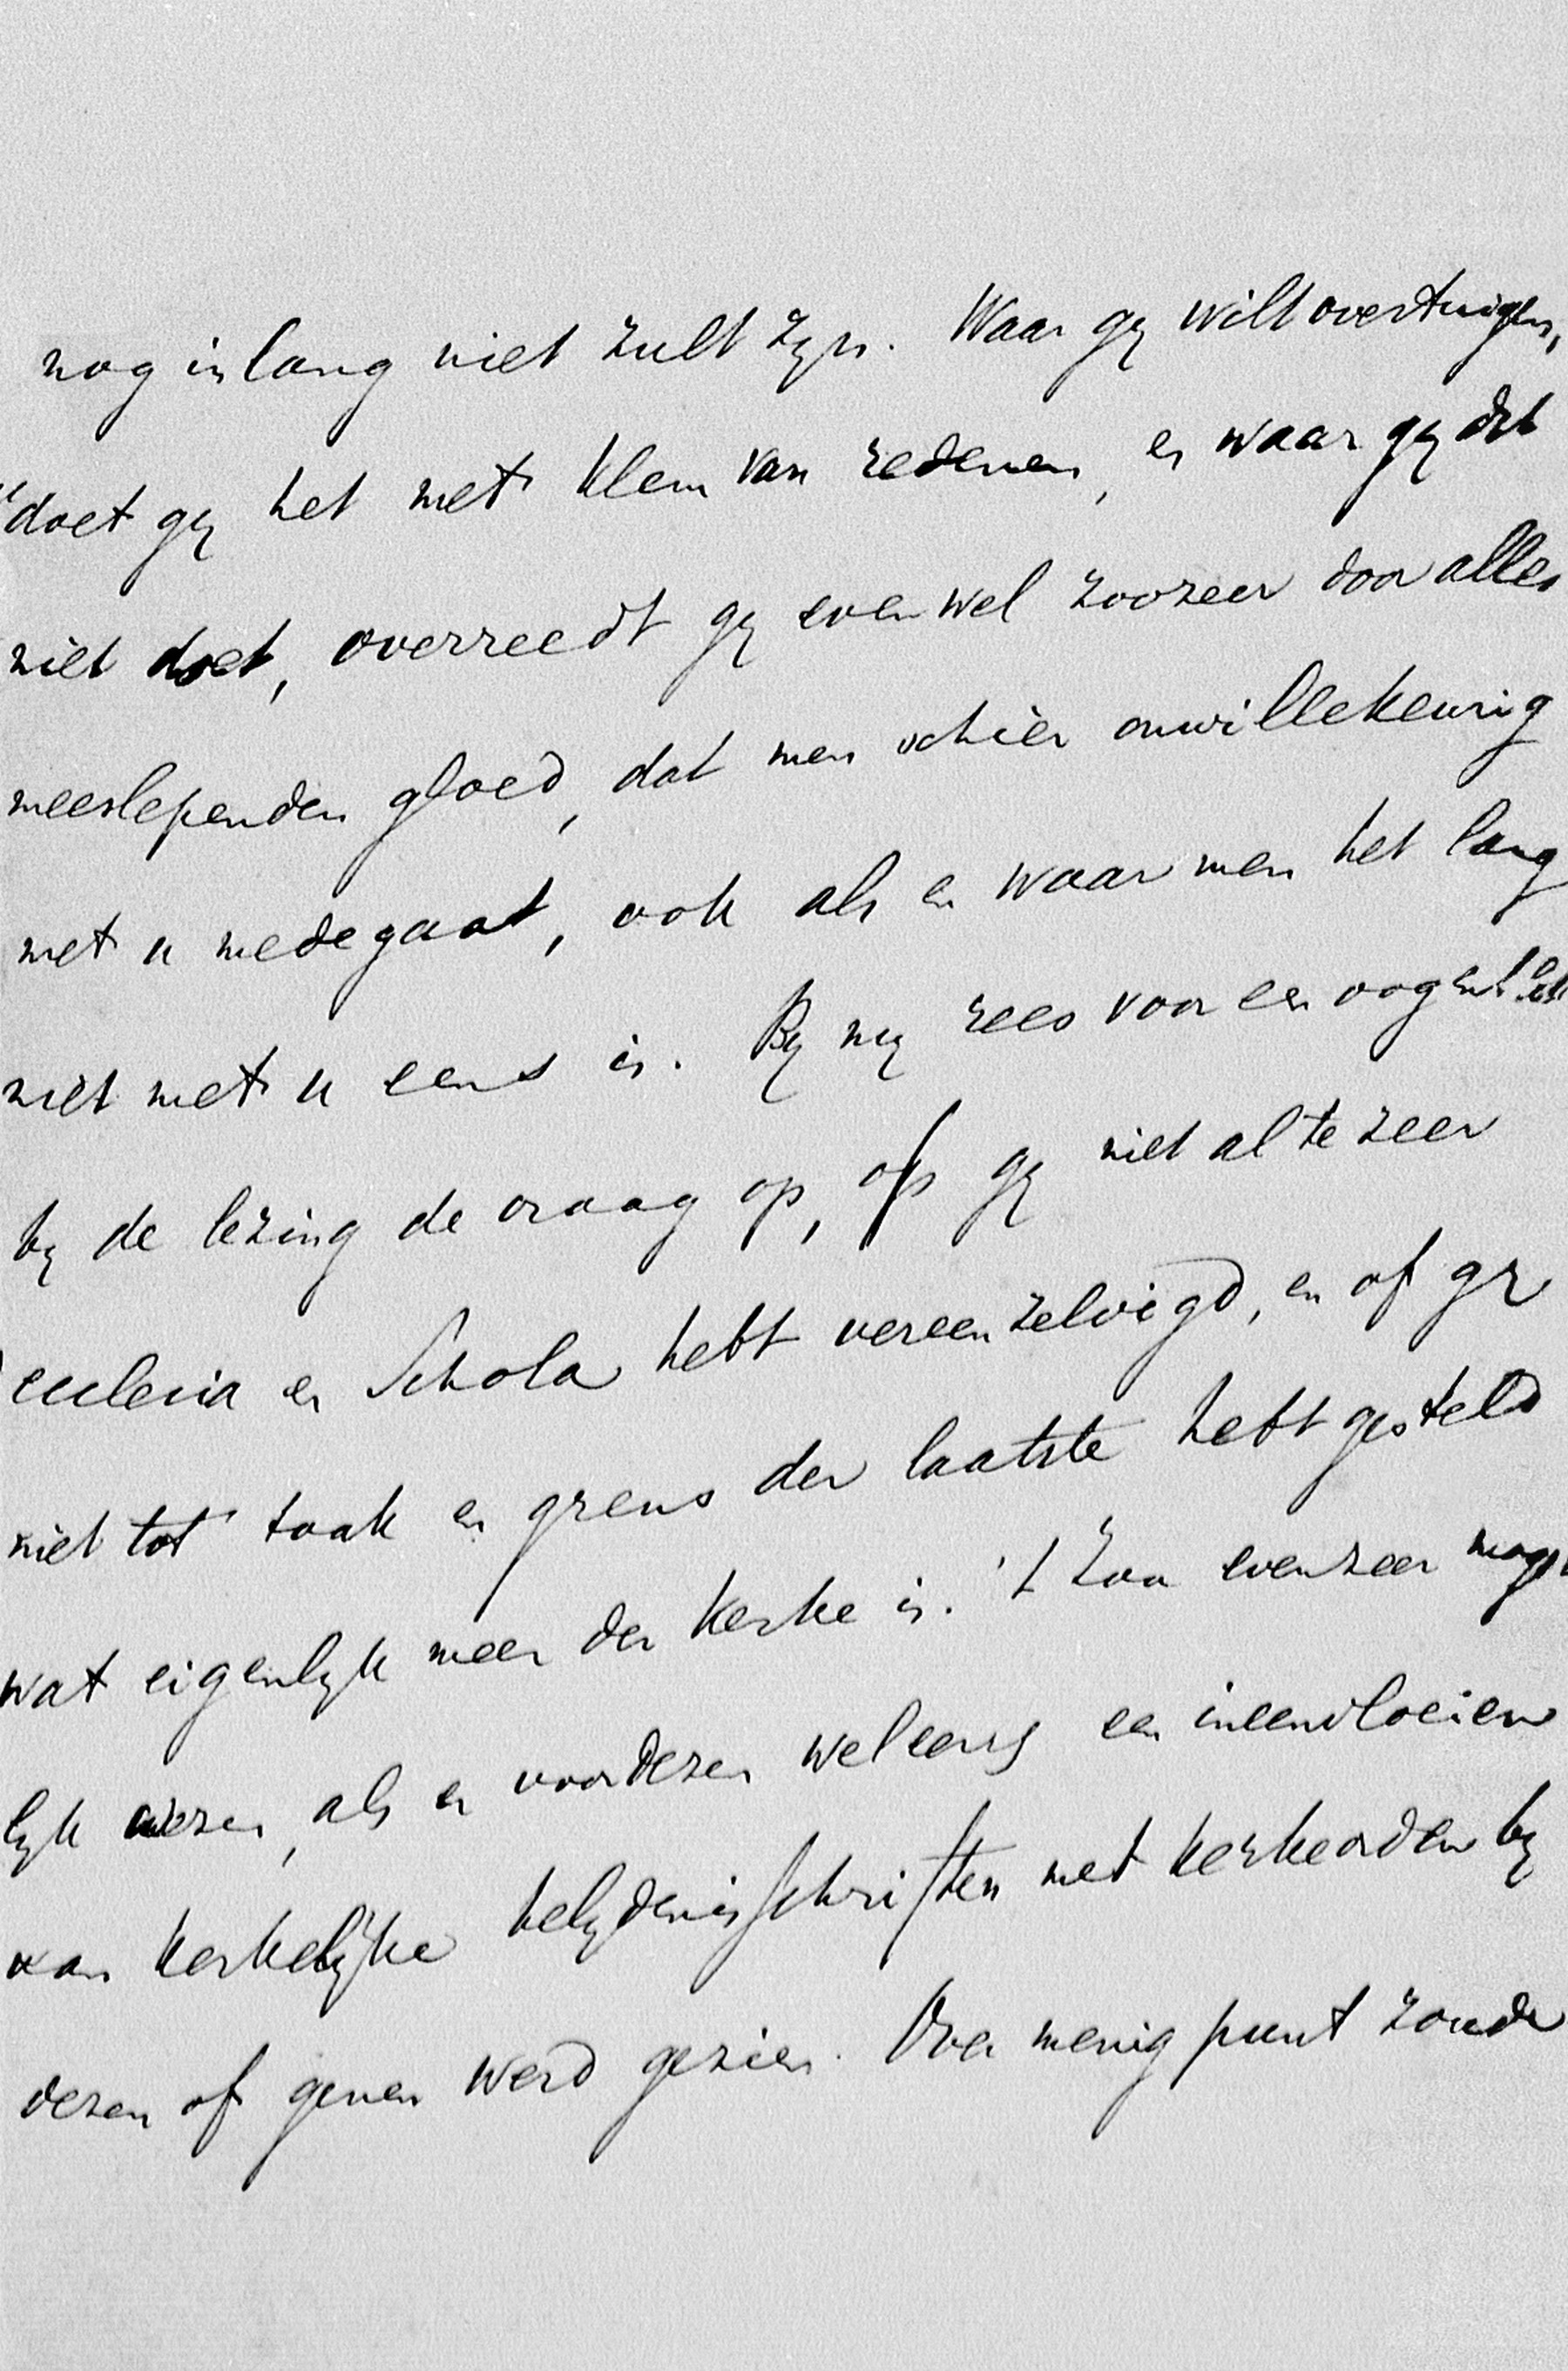 nog in lang niet zult zijn. Waar gij wilt overtuigen,
doet gij het met klem van redenen, en waar gij dat
niet doet, overreedt gij evenwel zoozeer door alles
meeslependen gloed, dat men schier onwillekeurig
met u medegaat, ook als en waar men het lang
niet met u eens is. Bij mij rees voor een oogenblik
bij de lezing de vraag op, of gij niet al te zeer
ecclesia en Schola hebt vereenzelvigd, en of gij
niet tot taak en grens der laatste hebt gesteld
wat eigenlijk meer der Kerke is. 't Zou evenzeer moge
lijk wezen, als er voordezen weleens een ineenvloeien
van Kerkelijke belijdenisschriften met kerkeorden bij
dezen of genen werd gezien. Over menig punt zoude